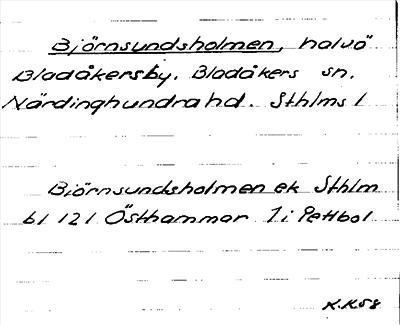 Björnsundsholmen, halvö
Bladåkersby. Bladåkers sn.
Närdinghundra hd. Sthlms l
Björnsundsholmen ek Sthlm
bl 121 Östhammar 1 i Pettbol
K.K58